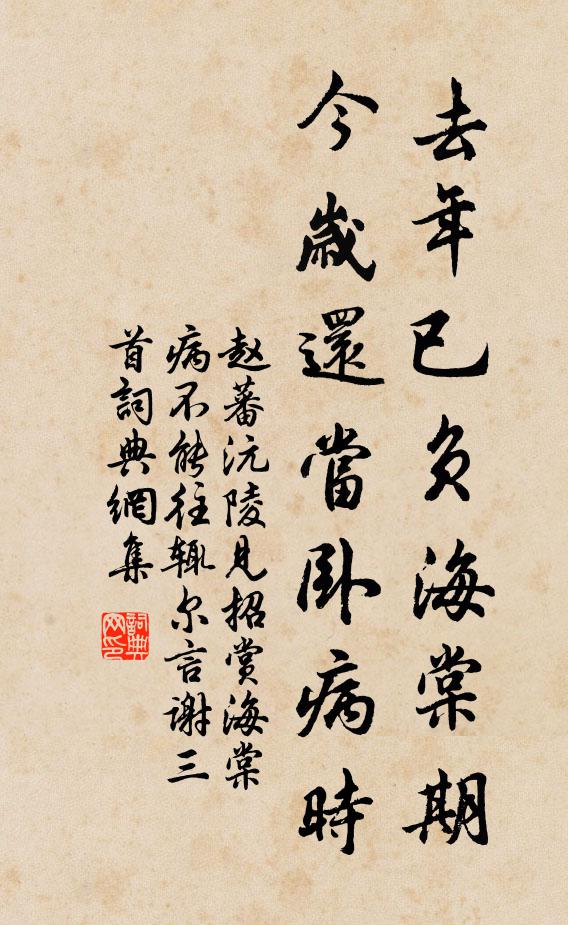 去年已負海棠期
今歲還當卧病時
赵蕃沅陵見招賞海棠
病不能往辄尔言謝三
首詞典網集
詞典網印